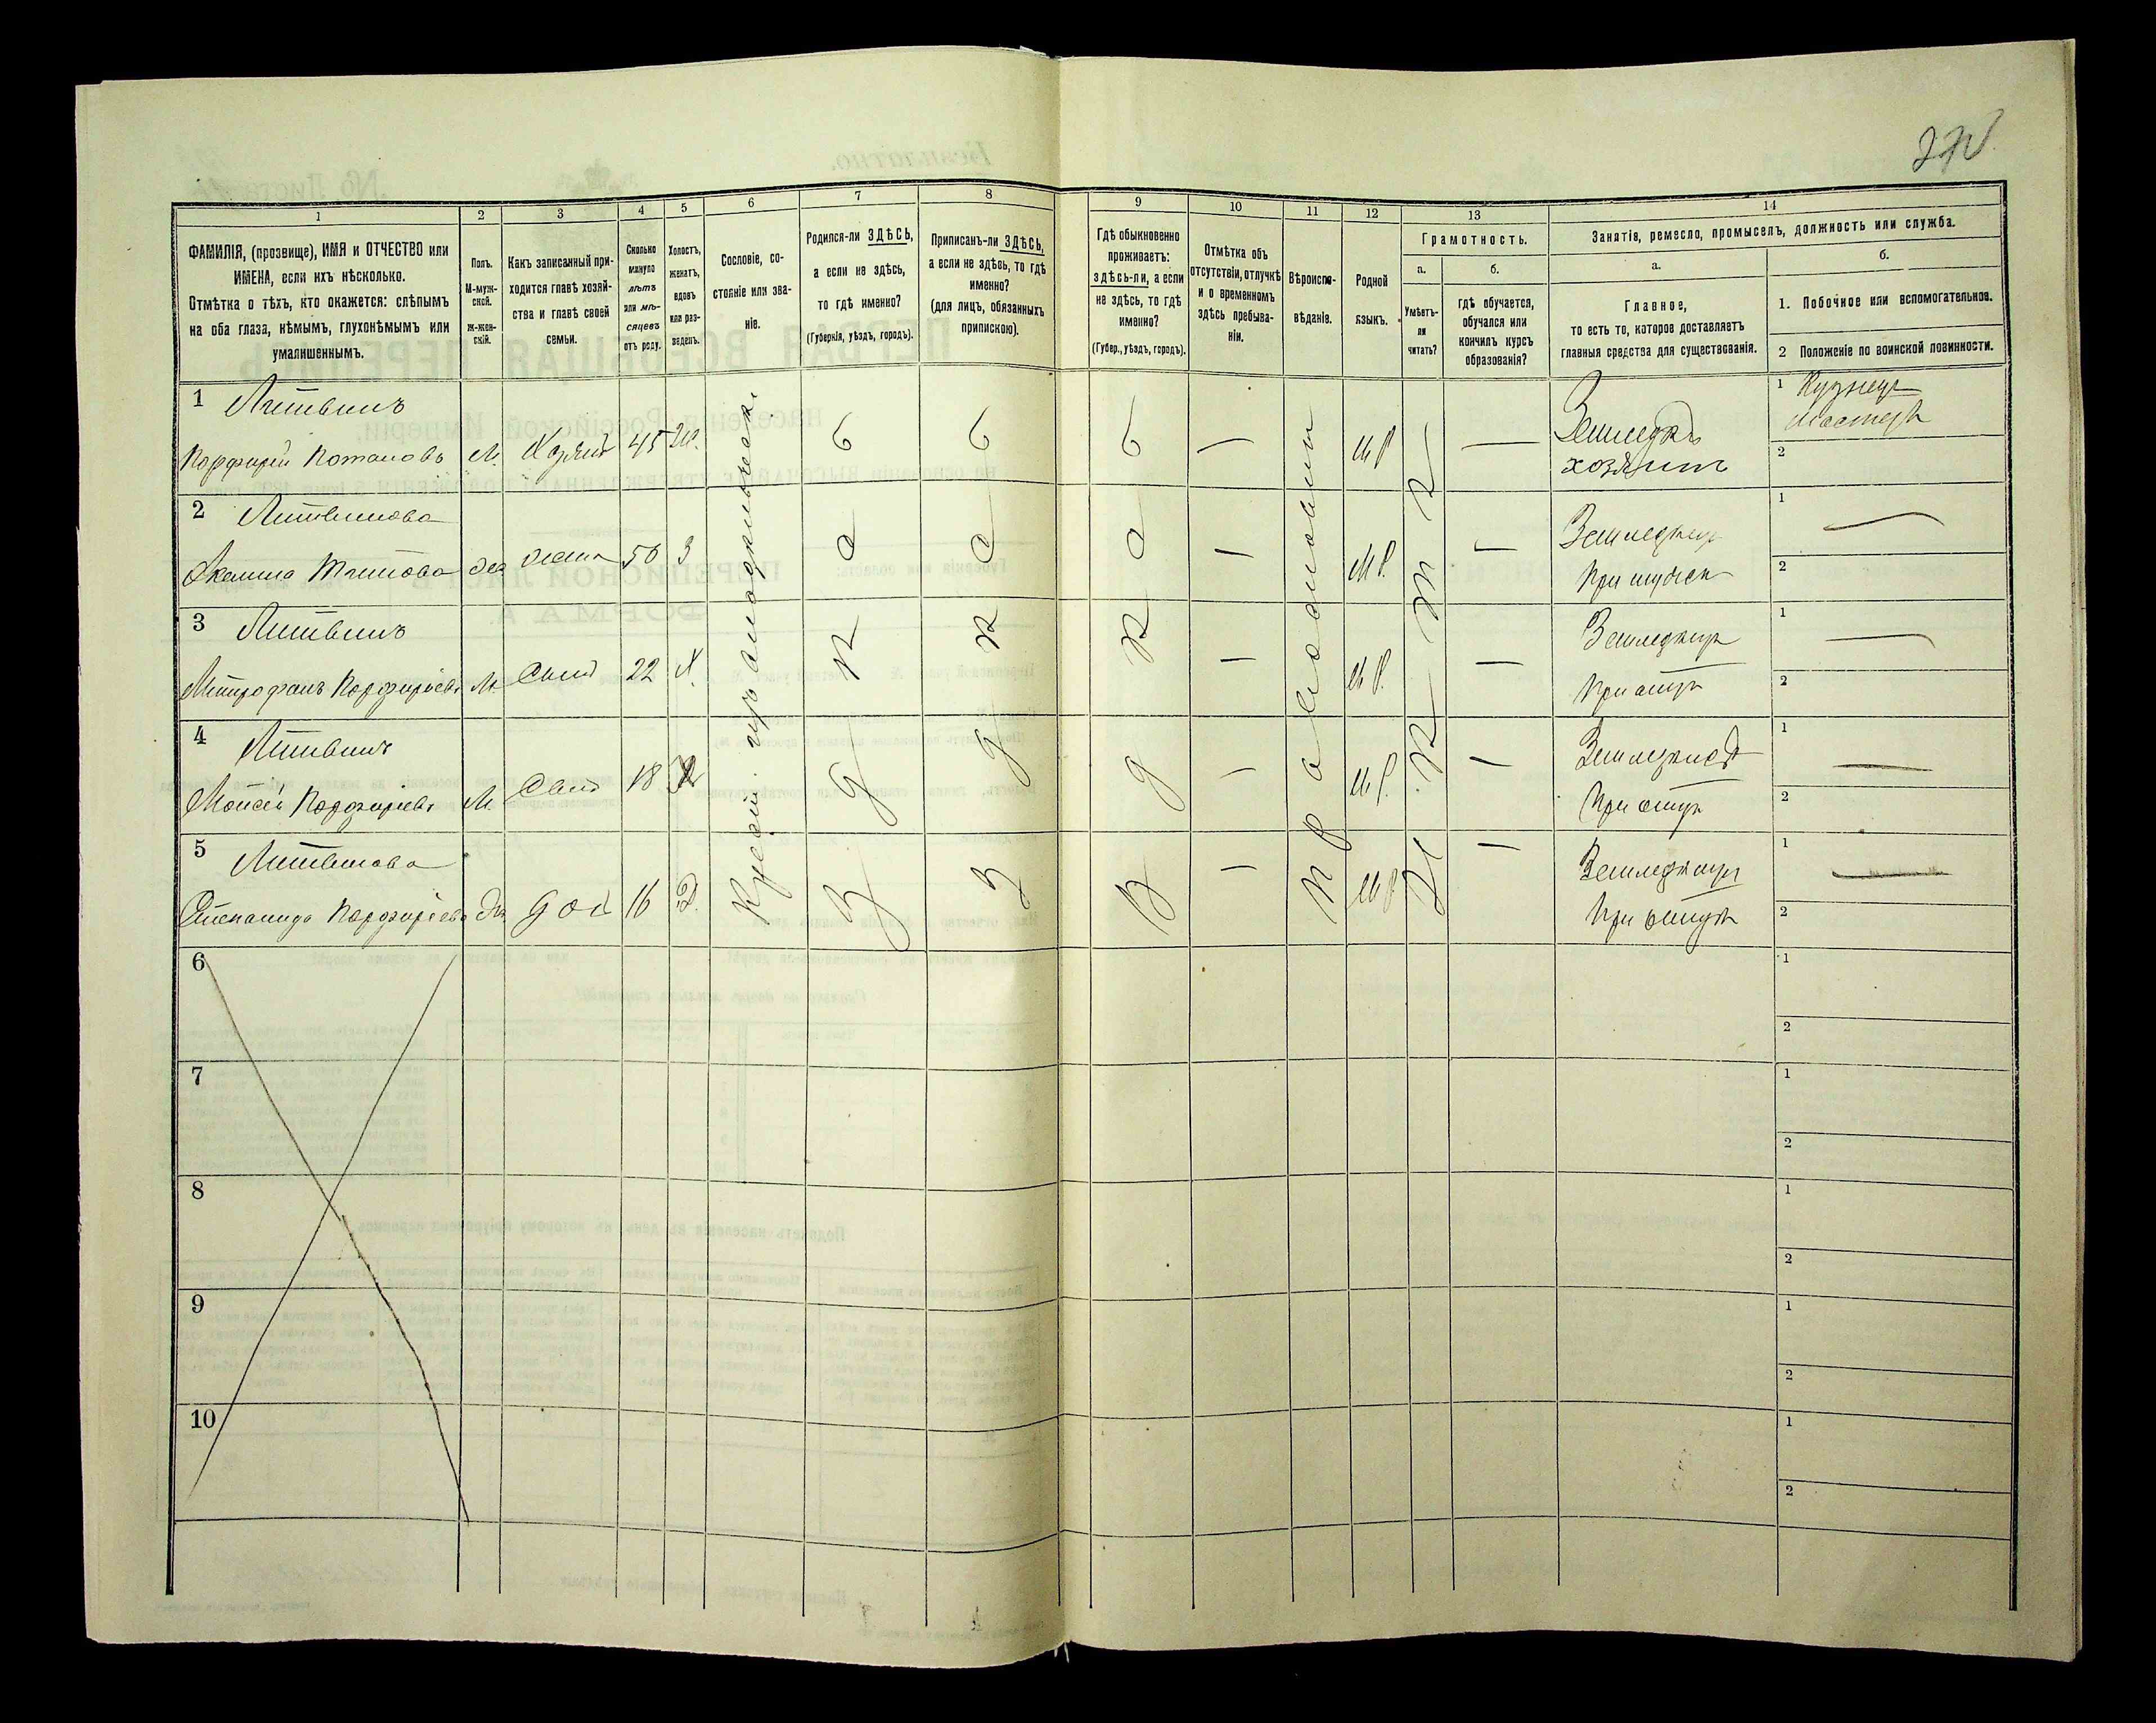 1
2
3
4
5
6
7
8
9
10
11
12
13
14
ФАМИЛІЯ, (прозвище), ИМЯ и ОТЧЕСТВО или
ИМЕНА, если ихъ нѣсколько.
Отмѣтка о тѣхъ, кто окажется: слѣпымъ
на оба глаза, нѣмымъ, глухонѣмымъ или
умалишеннымъ.
Полъ.
М-муж-
ской.
ж-жен-
скій.
Какъ записанный при-
ходится главѣ хозяй-
ства и главѣ своей
семьи.
Сколько
минуло
лѣтъ
или мѣ-
сяцевъ
отъ роду.
Холостъ,
женатъ,
вдовъ
или раз-
веденъ.
Сословіе, со-
стояніе или зва-
ніе.
Родился-ли ЗДѢСЬ,
а если не здѣсь,
то гдѣ именно?
(Губернія, уѣздъ, городъ).
Приписанъ-ли ЗДѢСЬ,
а если не здѣсь, то гдѣ
именно?
(для лицъ, обязанныхъ
припискою).
Гдѣ обыкновенно
проживаетъ:
здѣсь-ли, а если
не здѣсь, то гдѣ
именно?
(Губер., уѣздъ, городъ).
Отмѣтка объ
отсутствіи, отлучкѣ
и о временномъ
здѣсь пребыва-
ніи.
Вѣроиспо-
вѣданіе.
Родной
языкъ.
Грамотность.
а.
Умѣетъ-
ли
читать?
б.
гдѣ обучается,
обучался или
кончилъ курсъ
образованія?
Занятіе, ремесло, промыселъ, должность или служба.
а.
Главное,
то есть то, которое доставляетъ
главныя средства для существованія.
б.
1. Побочное или вспомогательное.
2 Положеніе по воинской повинности.
1 Литвинъ
Порфирій Потаповъ М. Хозяинъ 45 Ж.
М Р
хозяинъ
1 Кузнецъ
Мастеръ
2
2 Литвинова
жена 50 З
М Р.
При мужѣ
1
2
3 Литвинъ
Митрофанъ Порфирьевъ М Сынъ 22 Х.
М Р.
При отцѣ
1
2
4 Литвинъ
Моисей Порфирьевъ М. Сынъ 18
М Р.
При отцѣ
1
2
5 Литвинова
Степанида Порфирьева доч 16 Д.
М Р
При отцѣ
1
2
Православный
6
1
2
7
1
2
8
1
2
9
1
2
10
1
2